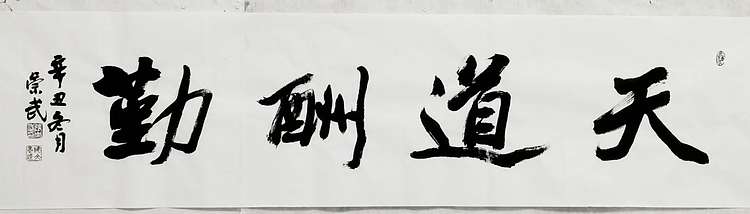 天道酬勤
辛丑冬月
崇武